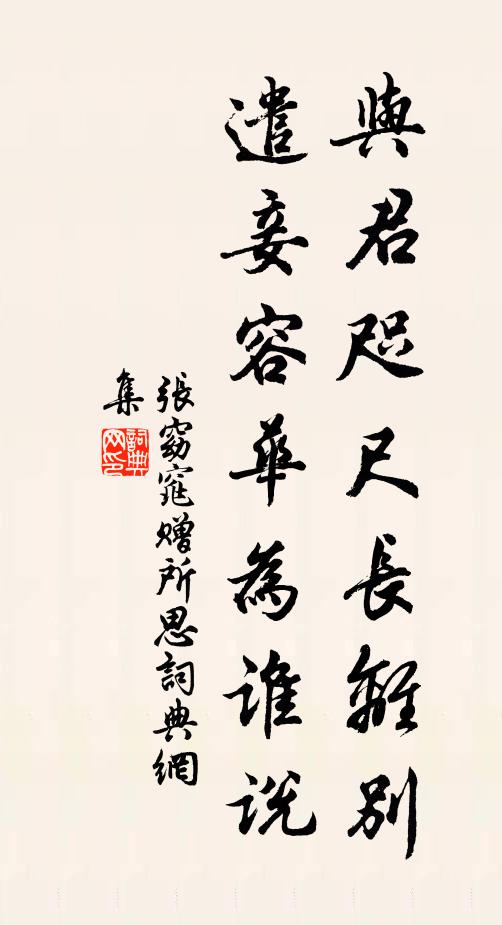 與君咫尺長離別
遣妾容華為誰說
張窈窕贈所思詞典網
集
詞典
網印